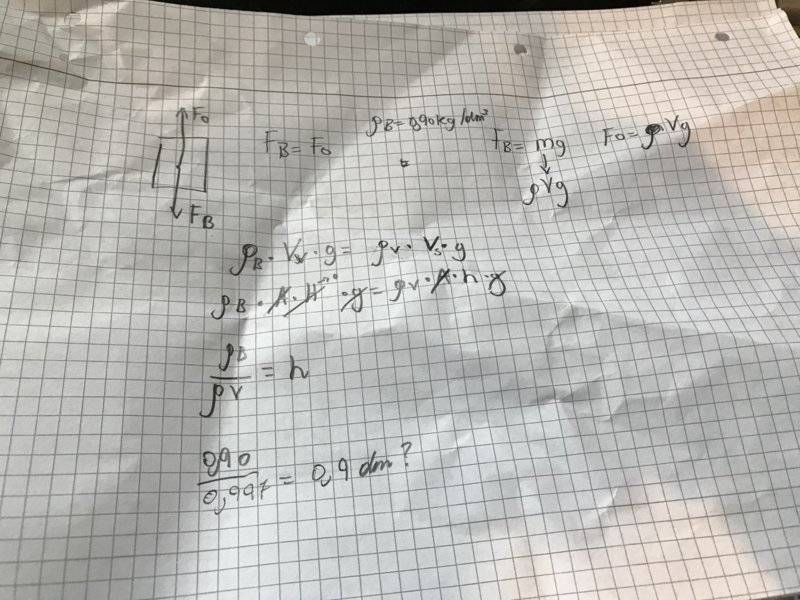 F₀
F_B = F₀
ρ_B = 0,90 kg/dm³
F_B = mg
F₀ = ρVg
↓
ρVg
F_B
ρ_B · V · g = ρv · Vs · g
ρ_B · A · H · g = ρv · A · h · g
ρ_B / ρv = h
0,90 / 0,997 = 0,9 dm?